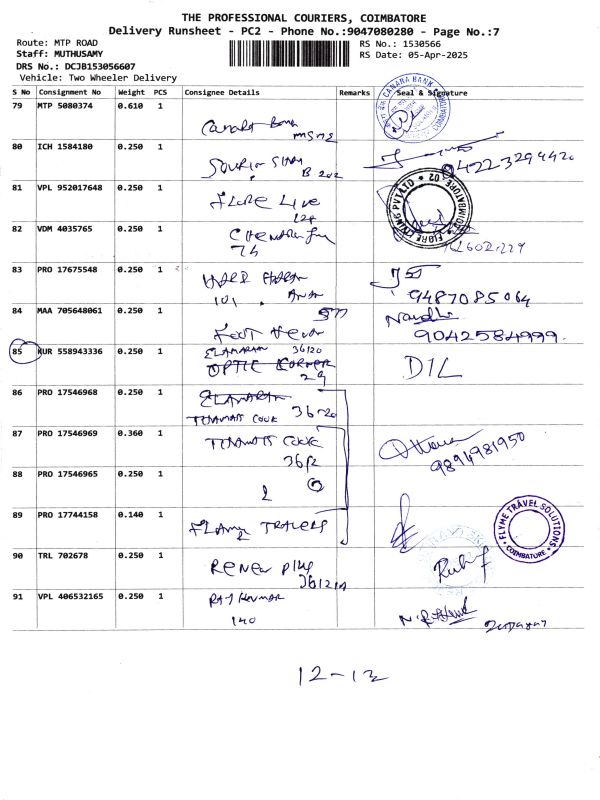 THE PROFESSIONAL COURIERS, COIMBATORE
Delivery Runsheet - PC2 - Phone No.:9047080280 - Page No.:7
Route: MTP ROAD
Staff: MUTHUSAMY
DRS No.: DCJB153056607
Vehicle: Two Wheeler Delivery
RS No.: 1530566
RS Date: 05-Apr-2025
S No Consignment No Weight PCS Consignee Details Remarks Seal & Signature
79 MTP 5080374 0.610 1
Canara Bank
CANARA BANK
80 ICH 1584180 0.250 1
B 202
04223294420
81 VPL 952017648 0.250 1
Flore Live
124
82 VDM 4035765 0.250 1
74
83 PRO 17675548 0.250 1
101
9487085064
84 MAA 705648061 0.250 1
Foot Wear
Nandhi
9042584999
85 KUR 558943336 0.250 1
ELAMARAN 36120
OPTIC CORNER
29
DIL
86 PRO 17546968 0.250 1
ELAMARAN
THOMAS COOK
87 PRO 17546969 0.360 1
THOMAS COOK
9894981950
88 PRO 17546965 0.250 1
2
89 PRO 17744158 0.140 1
FLYME TRAVEL SOLUTIONS
COIMBATORE
90 TRL 702678 0.250 1
Renew Plus
91 VPL 406532165 0.250 1
Raj Kumar
140
12-12